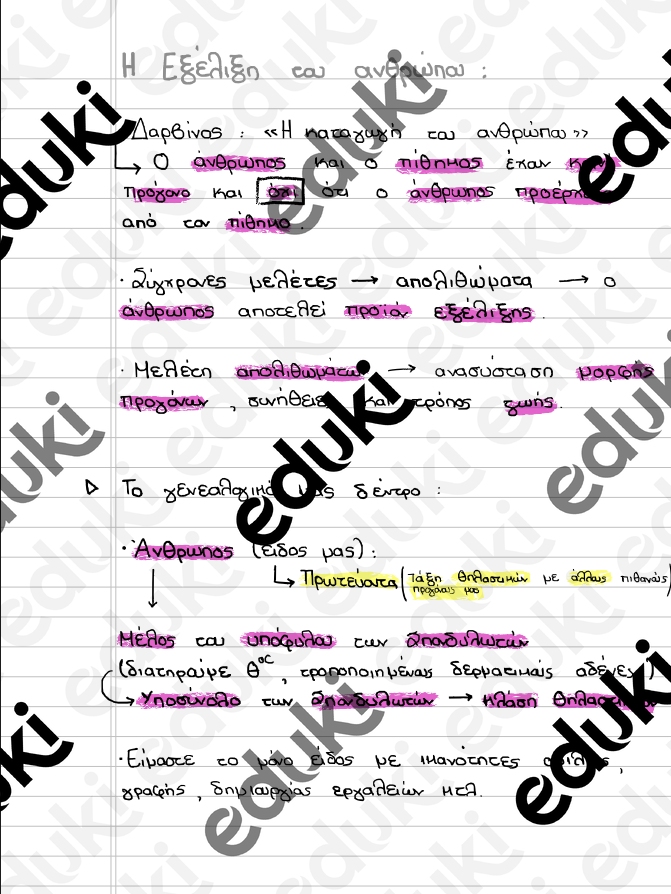 Η Εξέλιξη του ανθρώπου :
Δαρβίνος : «Η καταγωγή του ανθρώπου»
Ο άνθρωπος και ο πίθηκος έχουν
πρόγονο και όχι ότι ο άνθρωπος
από τον πίθηκο.
· Σύγχρονες μελέτες → απολιθώματα → ο
άνθρωπος αποτελεί προϊόν εξέλιξης.
· Μελέτη απολιθωμάτων → ανασύσταση μορφής
προγόνων, συνήθειες και τρόπος ζωής.
Το γενεαλογικό μας δέντρο :
· Άνθρωπος (είδος μας) :
Πρωτεύοντα (τάξη θηλαστικών με άλλους πιθανούς
προγόνους μας
Μέλος του υποφύλου των Σπονδυλωτών
(διατηρούμε θ°C, τροποποιημένους δερματικούς αδένες)
Υποσύνολο των Σπονδυλωτών → κλάση θηλαστικών
· Είμαστε το μόνο είδος με ικανότητες ομιλίας,
γραφής, δημιουργίας εργαλείων κτλ.
eduki
eduki
eduki
eduki
eduki
eduki
eduki
eduki
eduki